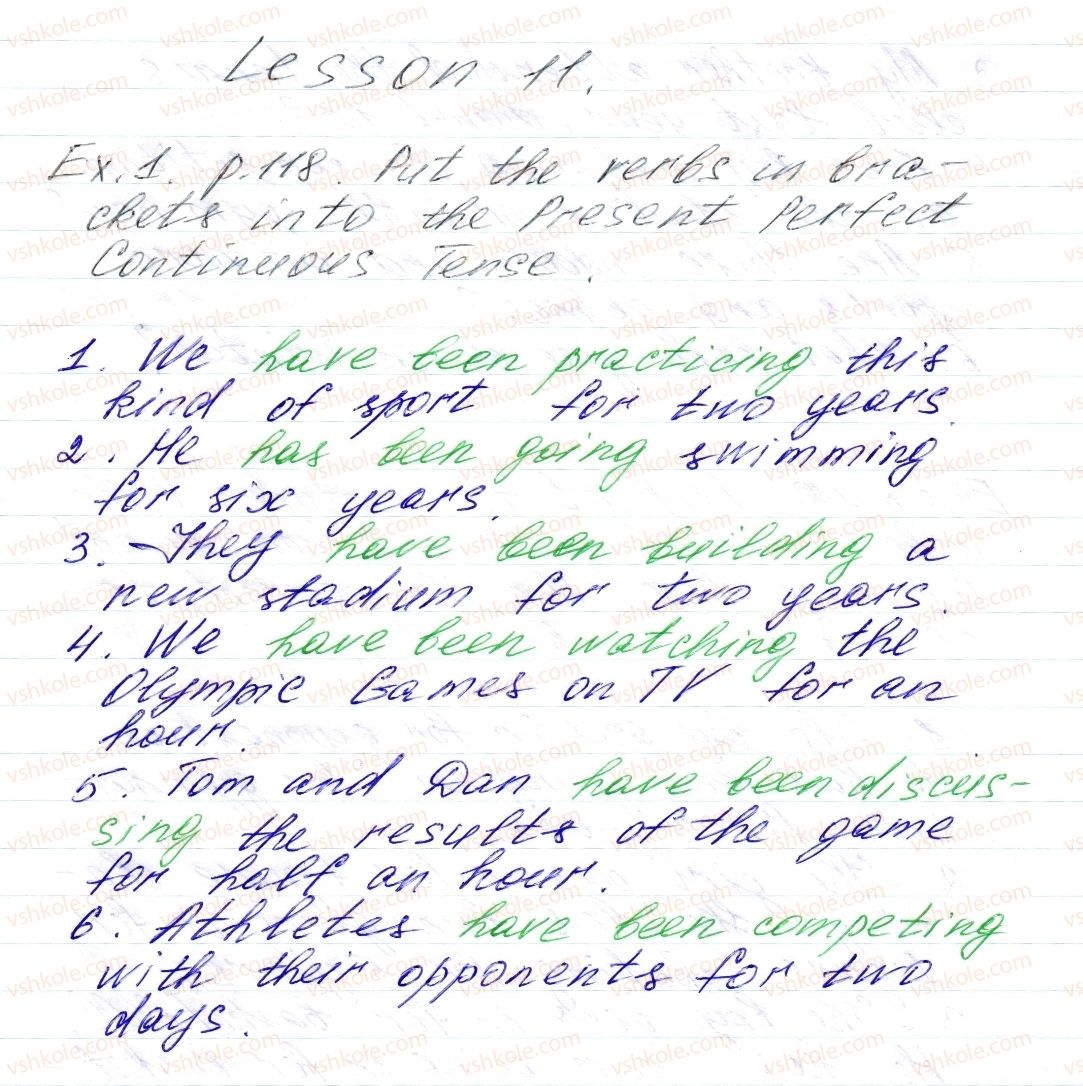 Lesson 11.
Ex.1. p.118. Put the verbs in bra-
ckets into the Present Perfect
Continuous Tense.
1. We have been practicing this
kind of sport for two years.
2. He has been going swimming
for six years.
3. They have been building a
new stadium for two years.
4. We have been watching the
Olympic Games on TV for an
hour.
5. Tom and Dan have been discus-
sing the results of the game
for half an hour.
6. Athletes have been competing
with their opponents for two
days.
vshkole.com